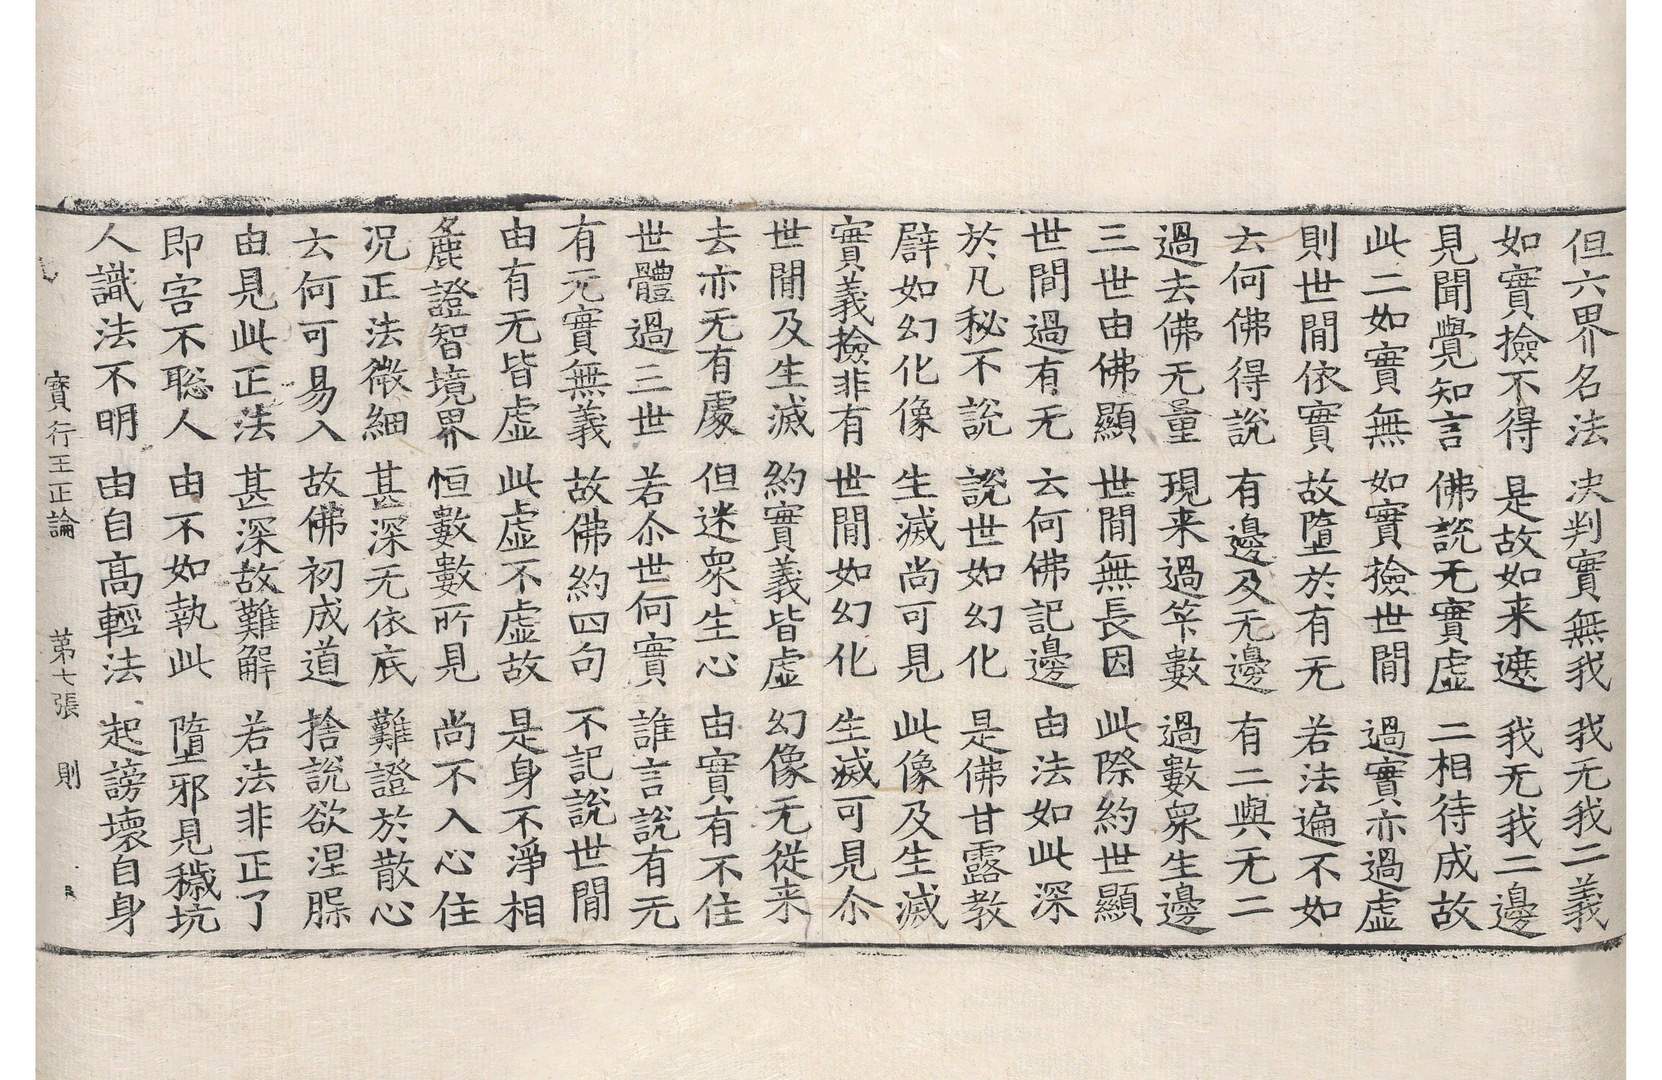 但六界名法 决判實無我 我无我二義
如實撿不得 是故如来遮 我无我二邊
見聞覺知言 佛説无實虛 二相待成故
此二如實無 如實撿世間 過實亦過虛
則世間依實 故墮於有无 若法遍不如
去何佛得説 有邊及无邊 有二與无二
過去佛无量 現来過筭數 過數衆生邊
三世由佛顯 世間無長因 此際約世顯
世間過有无 云何佛記邊 由法如此深
於凡秘不説 説世如幻化 是佛甘露教
譬如幻化像 生滅尚可見 此像及生滅
實義撿非有 世間如幻化 生滅可見尒
世間及生滅 約實義皆虛 幻像无從来
去亦无有處 但迷衆生心 由實有不住
世體過三世 若尒世何實 誰言説有无
有无實無義 故佛約四句 不記説世間
由有无皆虛 此虛不虛故 是身不淨相
麁證智境界 恒數數所見 尚不入心住
况正法微細 甚深无依底 難證於散心
云何可易入 故佛初成道 捨説欲涅槃
由見此正法 甚深故難解 若法非正了
即害不聡人 由不如執此 墮邪見穢坑
人識法不明 由自高輕法 起謗壞自身
寳行王正論 苐七張 則